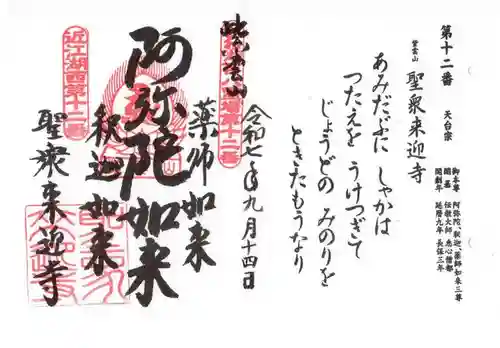 第十二番 天台宗
紫雲山 聖衆来迎寺
御本尊 阿弥陀、釈迦、薬師如来三尊
開基 伝教大師 恵心僧都
開創年 延暦九年 長保三年
あみだぶに しゃかは
つたえを うけつぎて
じょうどの みのりを
ときたもうなり
令和七年九月十四日
紫雲山
薬師如来
阿弥陀如来
釈迦如来
聖衆来迎寺
近江湖西第十二番
第十二番